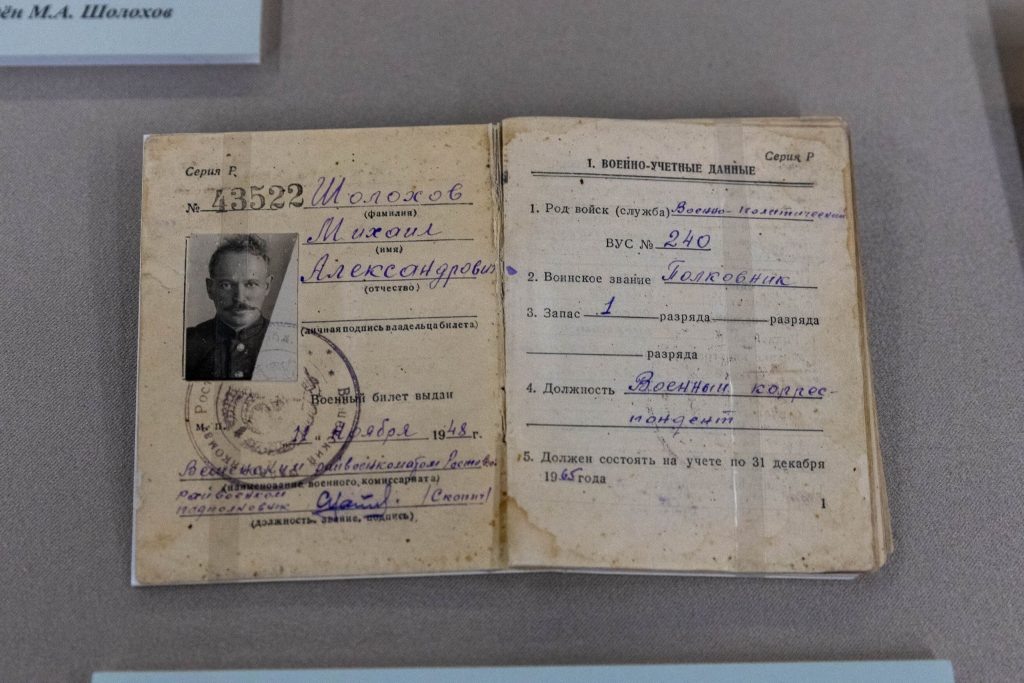 ён М.А. Шолохов
Серия Р
№ 43522 Шолохов
(фамилия)
Михаил
(имя)
Александрович
(отчество)
(личная подпись владельца билета)
Военный билет выдан
М. П. 11 „ ноября 1948 г.
Вешенским райвоенкоматом Ростов
(наименование военного комиссариата)
райвоенком
подполковник /Скопит/
(должность, звание, подпись)
Серия Р
1. ВОЕННО-УЧЕТНЫЕ ДАННЫЕ
1. Род войск (служба) Военно-политический
ВУС № 240
2. Воинское звание Полковник
3. Запас 1 разряда разряда
разряда
4. Должность Военный коррес-
пондент
5. Должен состоять на учете по 31 декабря
1965 года
1